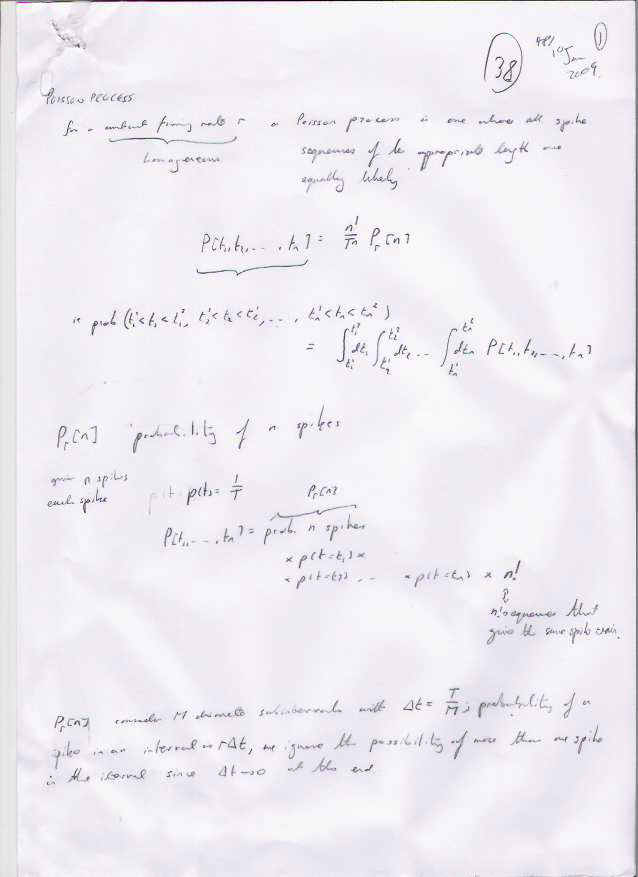 38
10 Jan
2009
1
POISSON PROCESS
for a constant firing rate r a Poisson process is one where all spike
homogeneous
sequences of the appropriate length are
equally likely
P[t₁,t₂,...,tₙ] = n!/Tⁿ P_r[n]
ie prob (t₁¹<t₁<t₁², t₂¹<t₂<t₂², ..., tₙ¹<tₙ<tₙ²)
= ∫_{t₁¹}^{t₁²} dt₁ ∫_{t₂¹}^{t₂²} dt₂ ... ∫_{tₙ¹}^{tₙ²} dtₙ P[t₁,t₂,...,tₙ]
P_r[n] probability of n spikes
given n spikes
each spike p(t) = 1/T
P_r[n]
P[t₁,...,tₙ] = prob. n spikes
× p(t=t₁) ×
× p(t=t₂) ... × p(t=tₙ) × n!
n! sequences that
give the same spike train.
P_r[n] consider M discrete subintervals with Δt = T/M; probability of a
spike in an interval is rΔt, we ignore the possibility of more than one spike
in the interval since Δt→0 at the end.